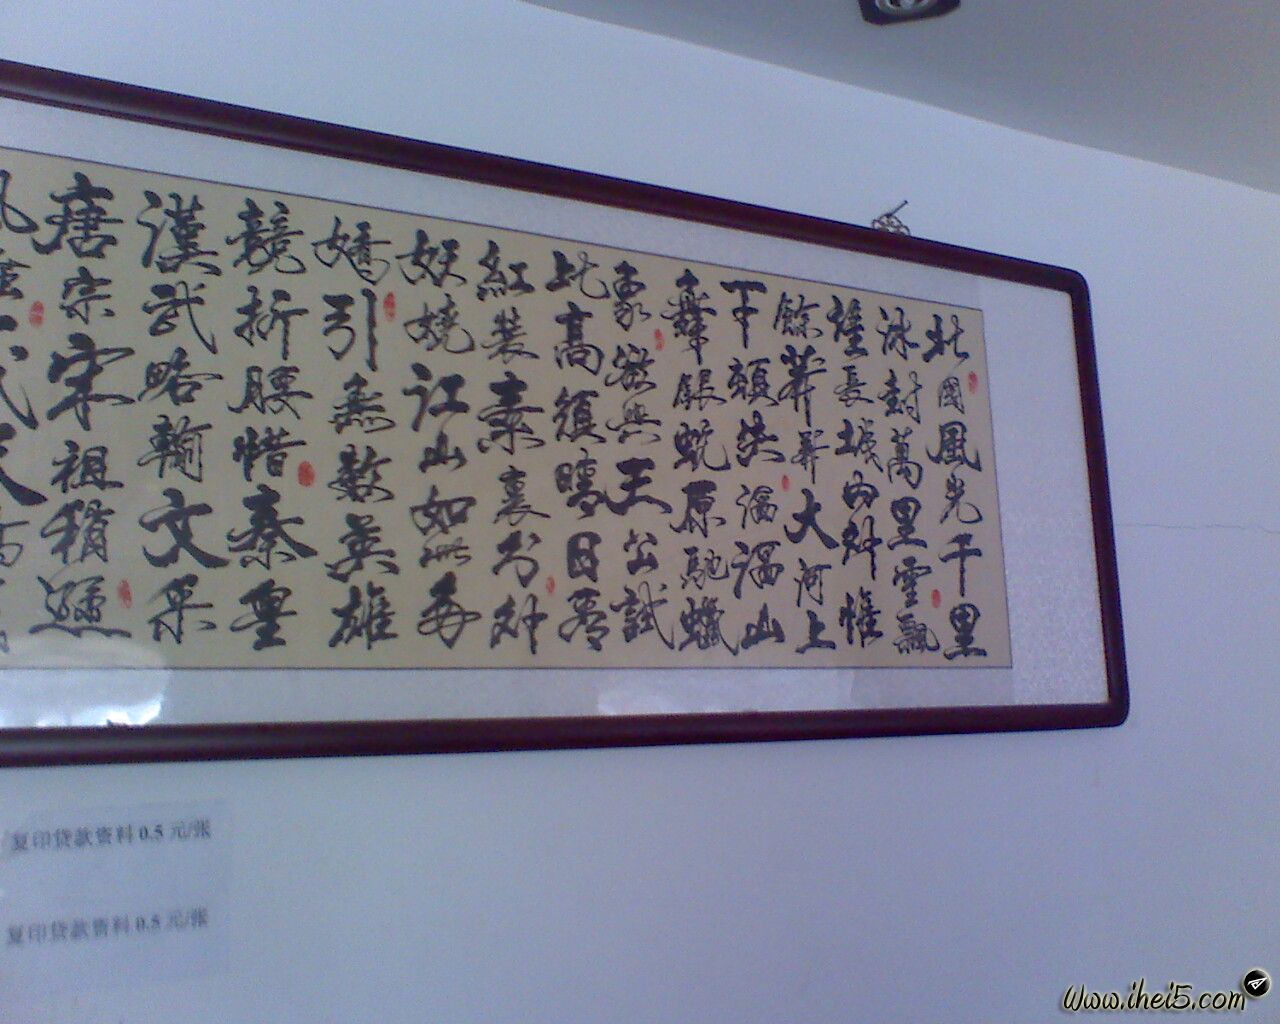 北國風光千里
冰封萬里雪飄
望長城內外惟
餘莽莽大河上
下頓失滔滔山
舞銀蛇原馳蠟
象欲與天公試
比高須晴日看
紅裝素裹分外
妖嬈江山如此多
嬌引無數英雄
競折腰惜秦皇
漢武略輸文采
唐宗宋祖稍遜
复印贷款资料 0.5 元/张
复印贷款资料 0.5 元/张
Www.ihei5.com